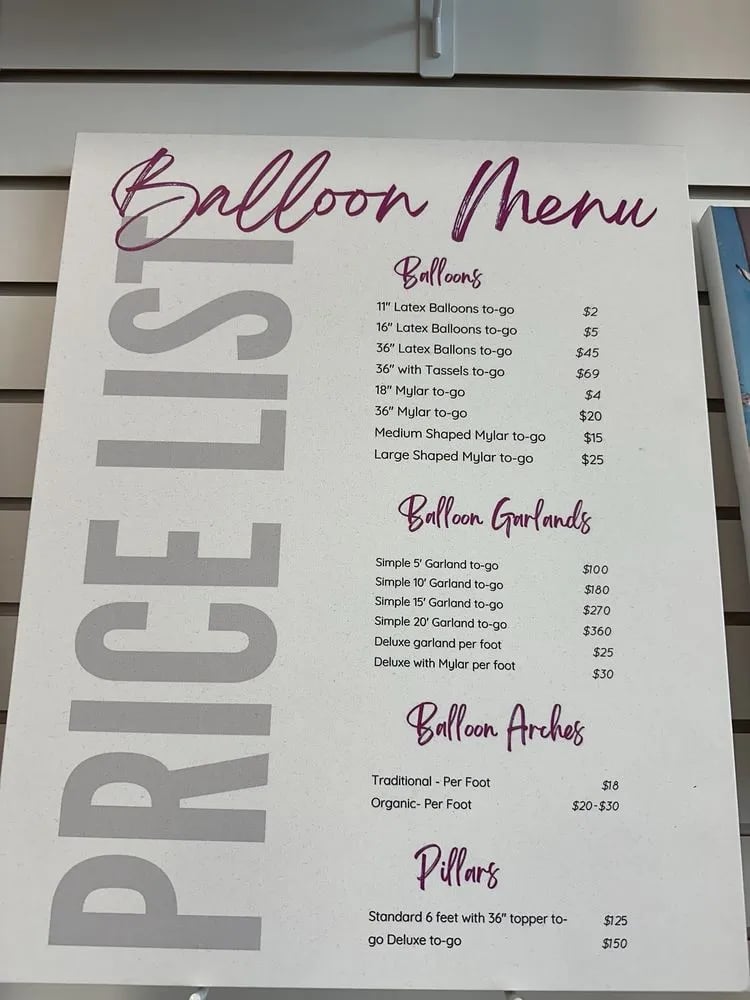 Balloon Menu
PRICE LIST
Balloons
11" Latex Balloons to-go $2
16" Latex Balloons to-go $5
36" Latex Ballons to-go $45
36" with Tassels to-go $69
18" Mylar to-go $4
36" Mylar to-go $20
Medium Shaped Mylar to-go $15
Large Shaped Mylar to-go $25
Balloon Garlands
Simple 5' Garland to-go $100
Simple 10' Garland to-go $180
Simple 15' Garland to-go $270
Simple 20' Garland to-go $360
Deluxe garland per foot $25
Deluxe with Mylar per foot $30
Balloon Arches
Traditional - Per Foot $18
Organic- Per Foot $20-$30
Pillars
Standard 6 feet with 36" topper to- $125
go Deluxe to-go $150